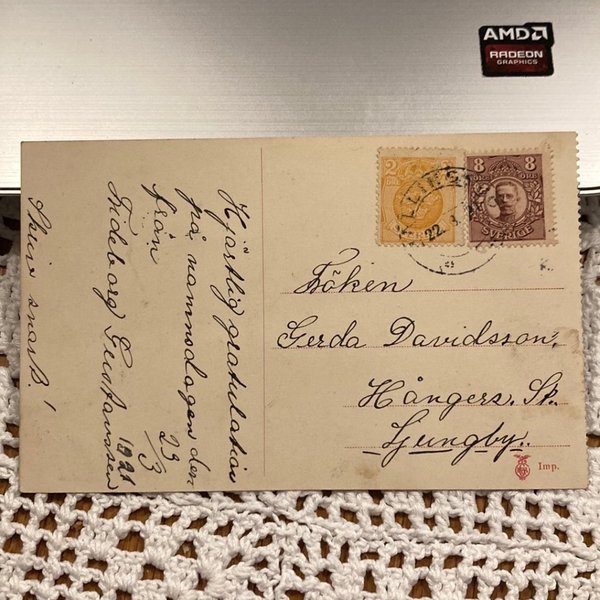 AMD
RADEON
GRAPHICS
2
8
8
ÖRE
ÖRE
SVERIGE
22.
Fröken
Gerda Davidsson,
Hångers. Sk.
Ljungby.
Imp.
Hjärtlig gratulation
på namnsdagen den
23/3
från
1921
Gustavsson
Skriv snart!